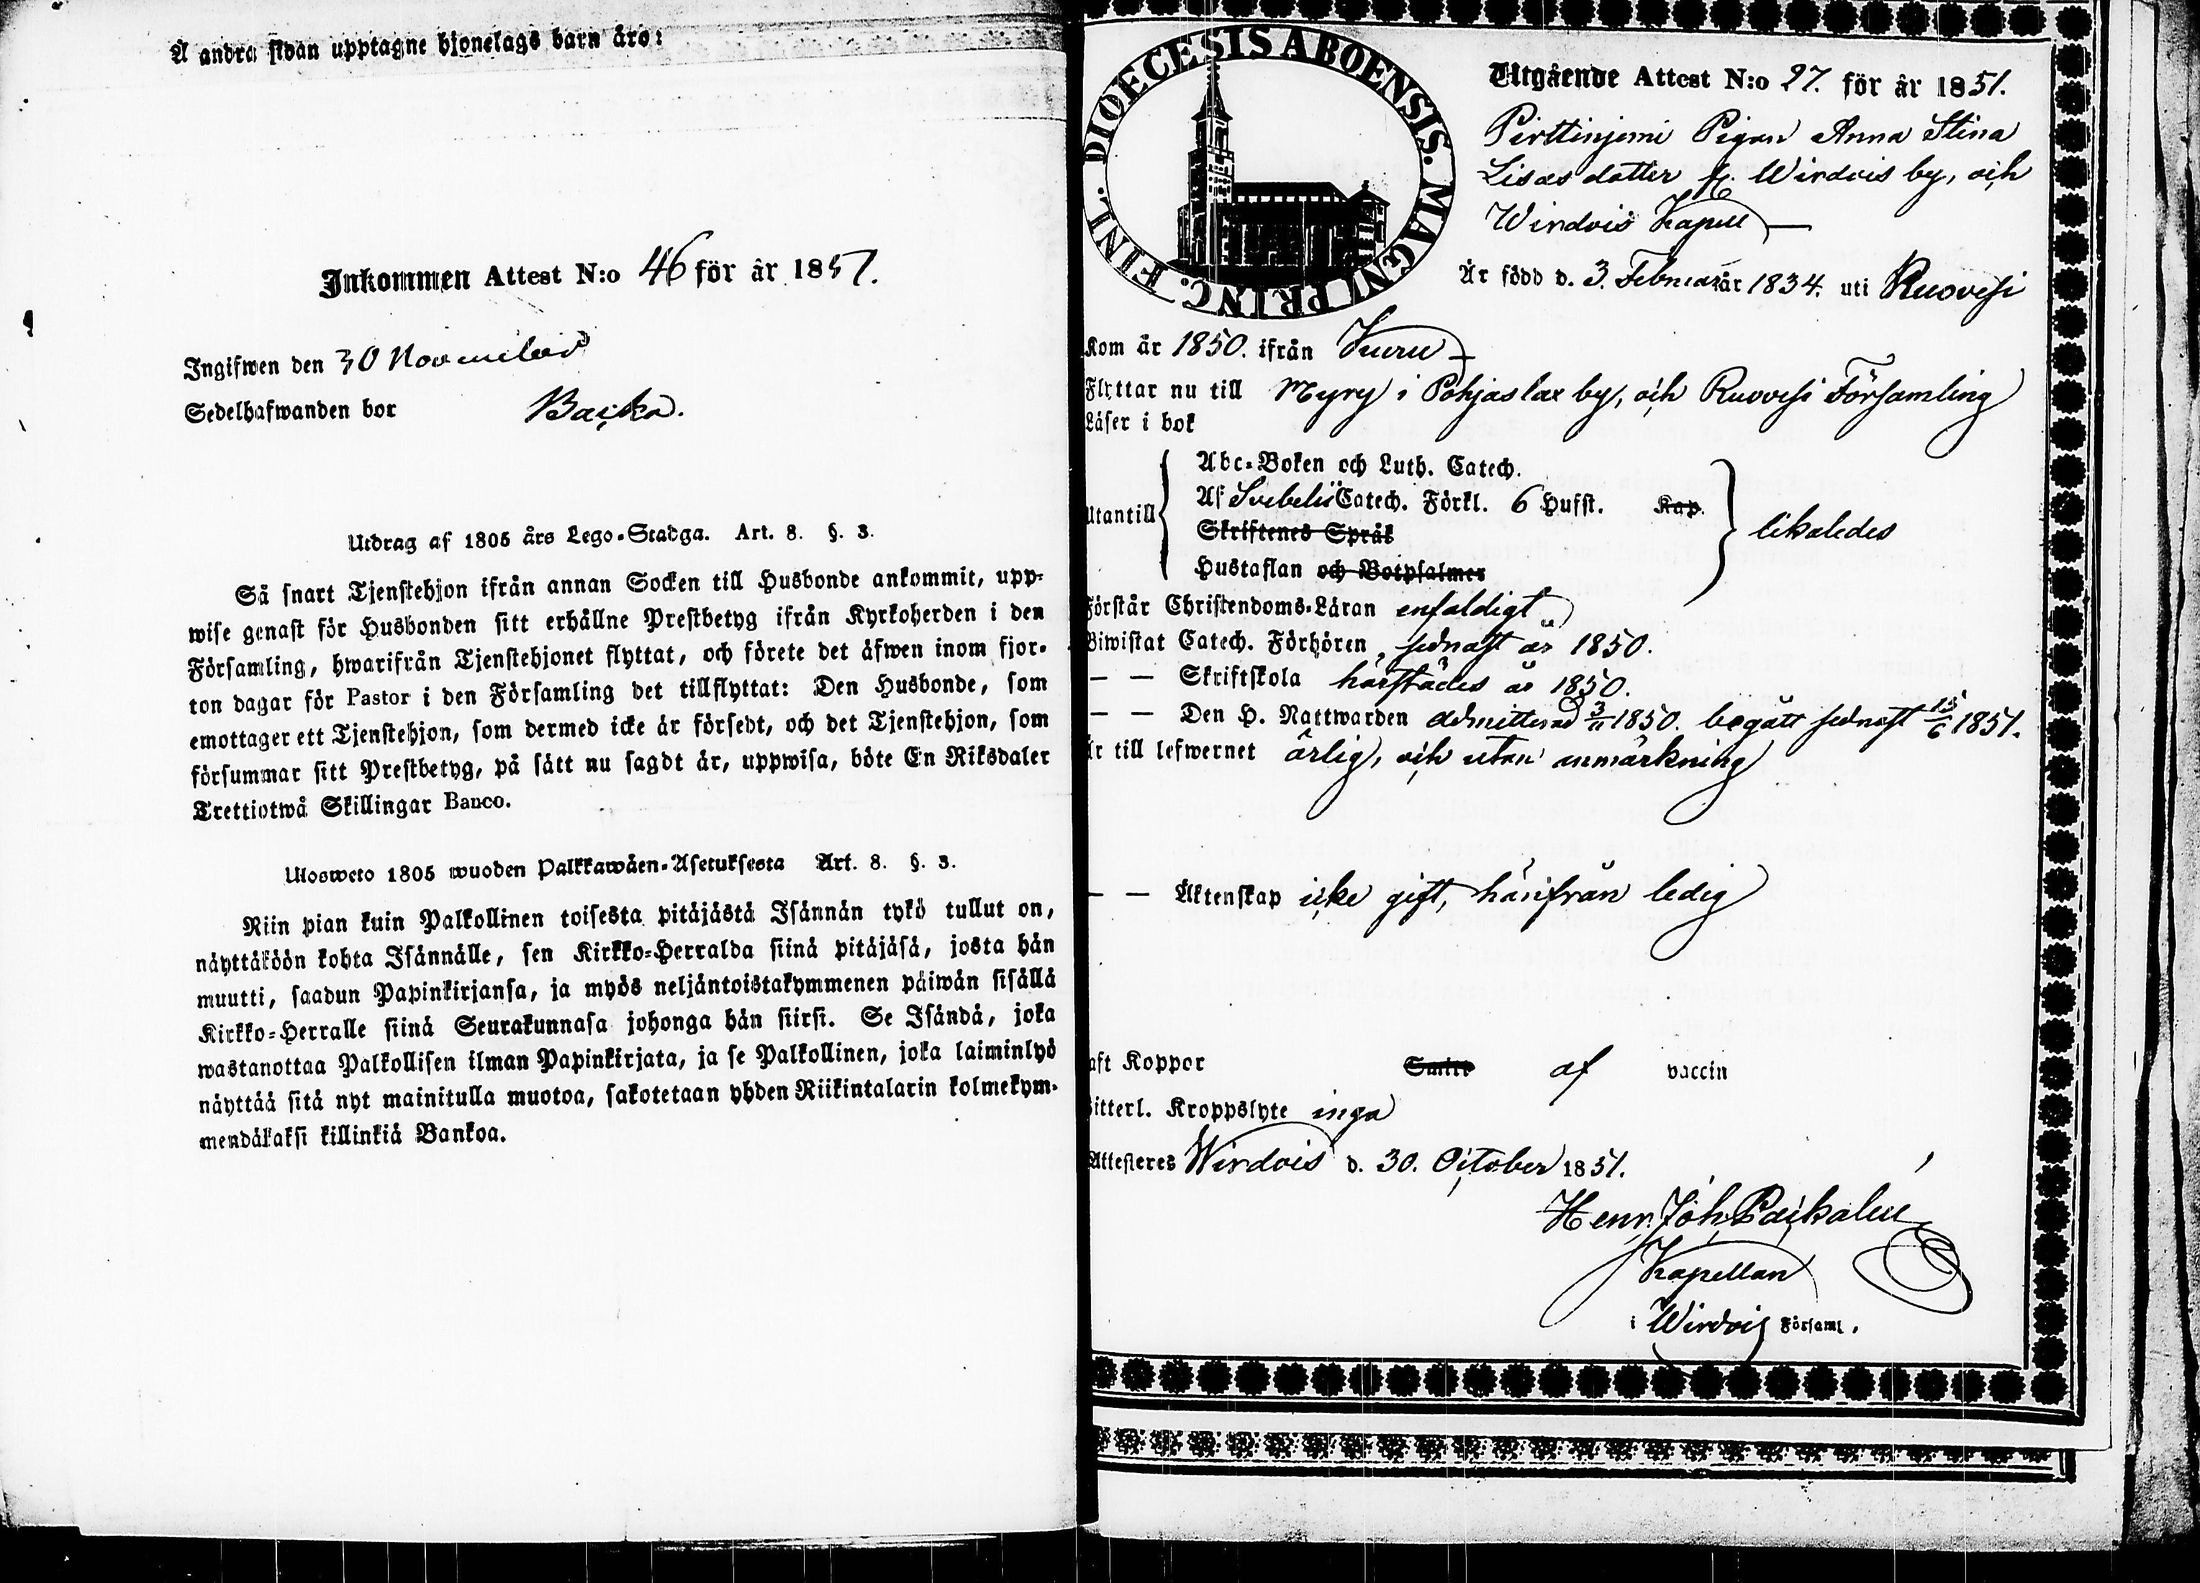 Å andra sidan upptagne hjonelags barn äro:
Inkommen Attest N:o 46 för år 1851.
Ingifwen den 30 November
Sedelhafwanden bor Backa.
Utdrag af 1805 års Lego-Stadga. Art. 8. §. 3.
Så snart Tjenstehjon ifrån annan Socken till Husbonde ankommit, upp-
wise genast för Husbonden sitt erhållne Prestbetyg ifrån Kyrkoherden i den
Församling, hwarifrån Tjenstehjonet flyttat, och förete det äfwen inom fjor-
ton dagar för Pastor i den Församling det tillflyttat: Den Husbonde, som
emottager ett Tjenstehjon, som dermed icke är försedt, och det Tjenstehjon, som
försummar sitt Prestbetyg, på sätt nu sagdt är, uppwisa, böte En Riksdaler
Trettiotwå Skillingar Banco.
Ulosweto 1805 wuoden Palkkawäen-Asetuksesta Art. 8. §. 3.
Niin pian kuin Palkollinen toisesta pitäjästä Isännän tykö tullut on,
näyttäköön kohta Isännälle, sen Kirkko-Herralda siinä pitäjäsä, josta hän
muutti, saadun Papinkirjansa, ja myös neljäntoistakymmenen päiwän sisällä
Kirkko-Herralle siinä Seurakunnasa johonga hän siirsi. Se Isändä, joka
wastanottaa Palkollisen ilman Papinkirjata, ja se Palkollinen, joka laiminlyö
näyttää sitä nyt mainitulla muotoa, sakotetaan yhden Riikintalarin kolmekym-
mendäkaksi killinkiä Bankoa.
DIOECESIS ABOENSIS. MAGNI PRINC. FINL.
Utgående Attest N:o 27. för år 1851.
Pirttinjemi Pigan Anna Stina
Lisas dotter fr. Wirdois by, och
Wirdois Kapell
Är född d. 3. Februari år 1834. uti Ruovesi
Kom år 1850. ifrån Kuru
Flyttar nu till Myry i Pohjaslax by, och Ruovesi Församling
Läser i bok
Utantill
Abc-Boken och Luth. Catech.
Af Svebelii Catech. Förkl. 6 Hufst. Kap.
Skriftenes Språk
Hustaflan och Botpsalmer
likaledes
Förstår Christendoms-Läran enfaldigt
Biwistat Catech. Förhören, sednast år 1850.
— — Skriftskola härstädes år 1850.
— — Den H. Nattwarden admitterad 3/11 1850. begått sednast 15/6 1851.
Är till lefwernet ärlig, och utan anmärkning
— — Äktenskap icke gift, härifrån ledig
aft Koppor Smitt af vaccin
itterl. Kroppslyte inga
Attesteres Wirdois d. 30. October 1851.
Henr. Joh. Packalen
Kapellan
i Wirdois Församl.